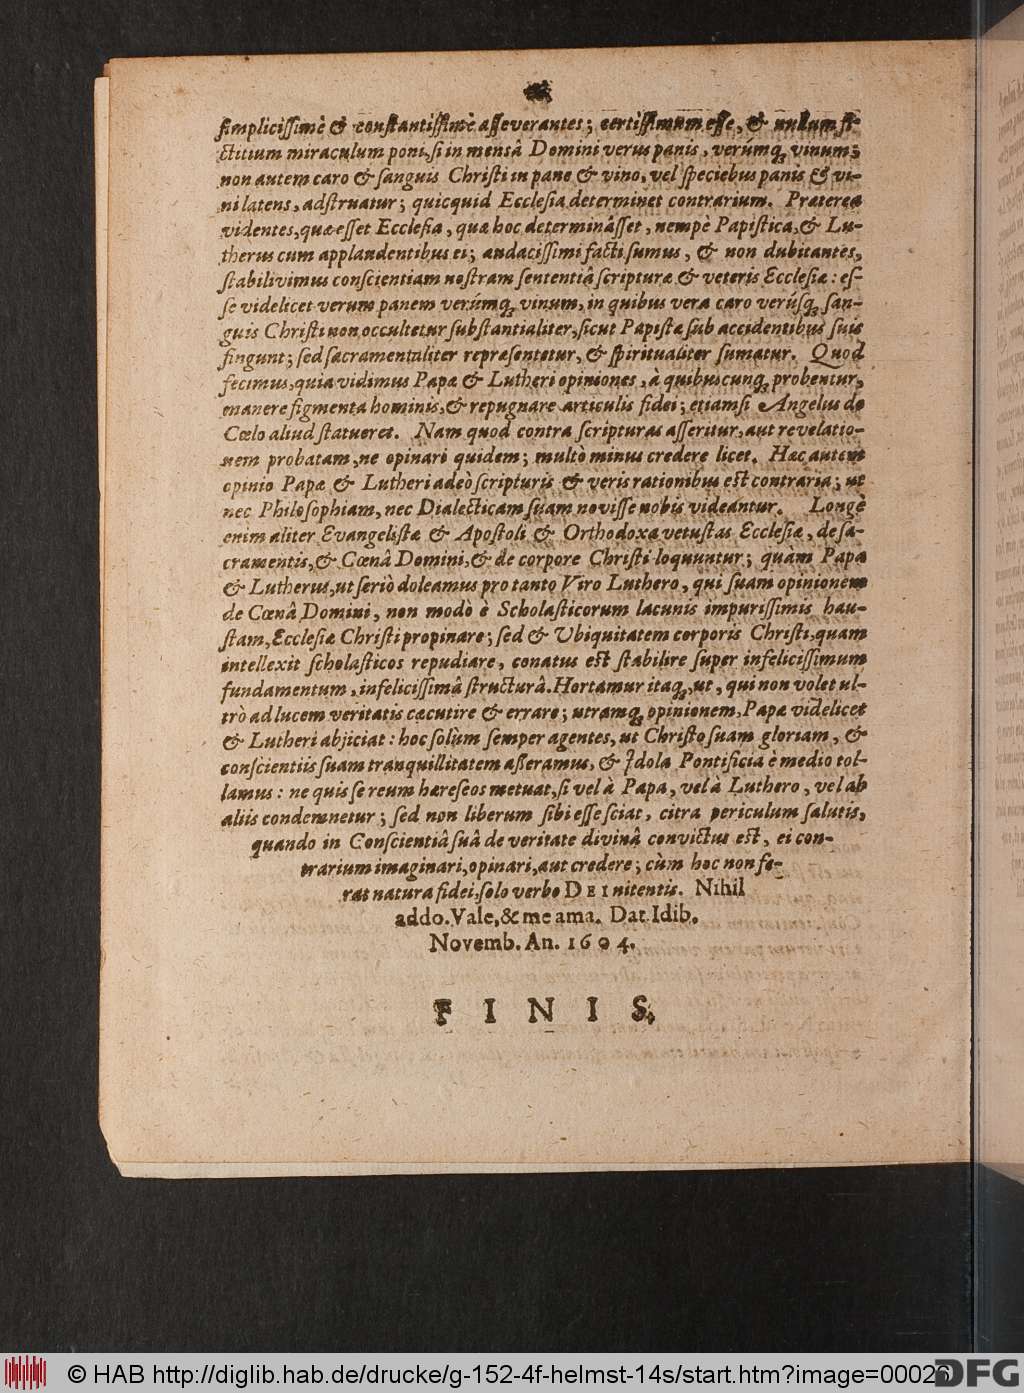 simplicissimè & constantissimè asseverantes; certissimum esse, & nullum fi-
ctitium miraculum poni, si in mensâ Domini verus panis, verúmq; vinum;
non autem caro & sanguis Christi in pane & vino, vel speciebus panis & vi-
ni latens, adstruatur; quicquid Ecclesia determinet contrarium. Præterea
videntes, quæ esset Ecclesia, quæ hoc determinâsset, nempè Papistica, & Lu-
therus cum applaudentibus ei; audacissimi facti sumus, & non dubitantes,
stabilivimus conscientiam nostram sententiâ scripturæ & veteris Ecclesiæ: es-
se videlicet verum panem verúmq; vinum, in quibus vera caro verúsq; san-
guis Christi non occultetur substantialiter, sicut Papistæ sub accidentibus suis
fingunt; sed sacramentaliter repræsentetur, & spiritualiter sumatur. Quod
fecimus, quia vidimus Papæ & Lutheri opiniones, à quibuscunq; probentur,
manere figmenta hominis, & repugnare articulis fidei; etiamsi Angelus de
Cœlo aliud statueret. Nam quod contra scripturas asseritur, aut revelatio-
nem probatam, ne opinari quidem; multò minus credere licet. Hæc autem
opinio Papæ & Lutheri adeò scripturis & veris rationibus est contraria; ut
nec Philosophiam, nec Dialecticam suam novisse nobis videantur. Longè
enim aliter Evangelistæ & Apostoli & Orthodoxa vetustas Ecclesiæ, de sa-
cramentis, & Cœnâ Domini, & de corpore Christi loquuntur; quàm Papa
& Lutherus, ut seriò doleamus pro tanto Viro Luthero, qui suam opinionem
de Cœnâ Domini, non modò è Scholasticorum lacunis impurissimis hau-
stam, Ecclesiæ Christi propinare; sed & Ubiquitatem corporis Christi, quam
intellexit scholasticos repudiare, conatus est stabilire super infelicissimum
fundamentum, infelicissimâ structurâ. Hortamur itaq; ut, qui non volet ul-
trò ad lucem veritatis cæcutire & errare; utramq; opinionem, Papæ videlicet
& Lutheri abjiciat: hoc solùm semper agentes, ut Christo suam gloriam, &
conscientiis suam tranquillitatem asseramus, & Idola Pontificia è medio tol-
lamus: ne quis se reum hæreseos metuat, si vel à Papa, vel à Luthero, vel ab
aliis condemnetur; sed non liberum sibi esse sciat, citra periculum salutis,
quando in Conscientiâ suâ de veritate divinâ convictus est, ei con-
trarium imaginari, opinari, aut credere; cùm hoc non fe-
rat natura fidei, solo verbo DEI nitentis. Nihil
addo. Vale, & me ama. Dat. Idib.
Novemb. An. 1604.
FINIS.
© HAB http://diglib.hab.de/drucke/g-152-4f-helmst-14s/start.htm?image=00026
DFG